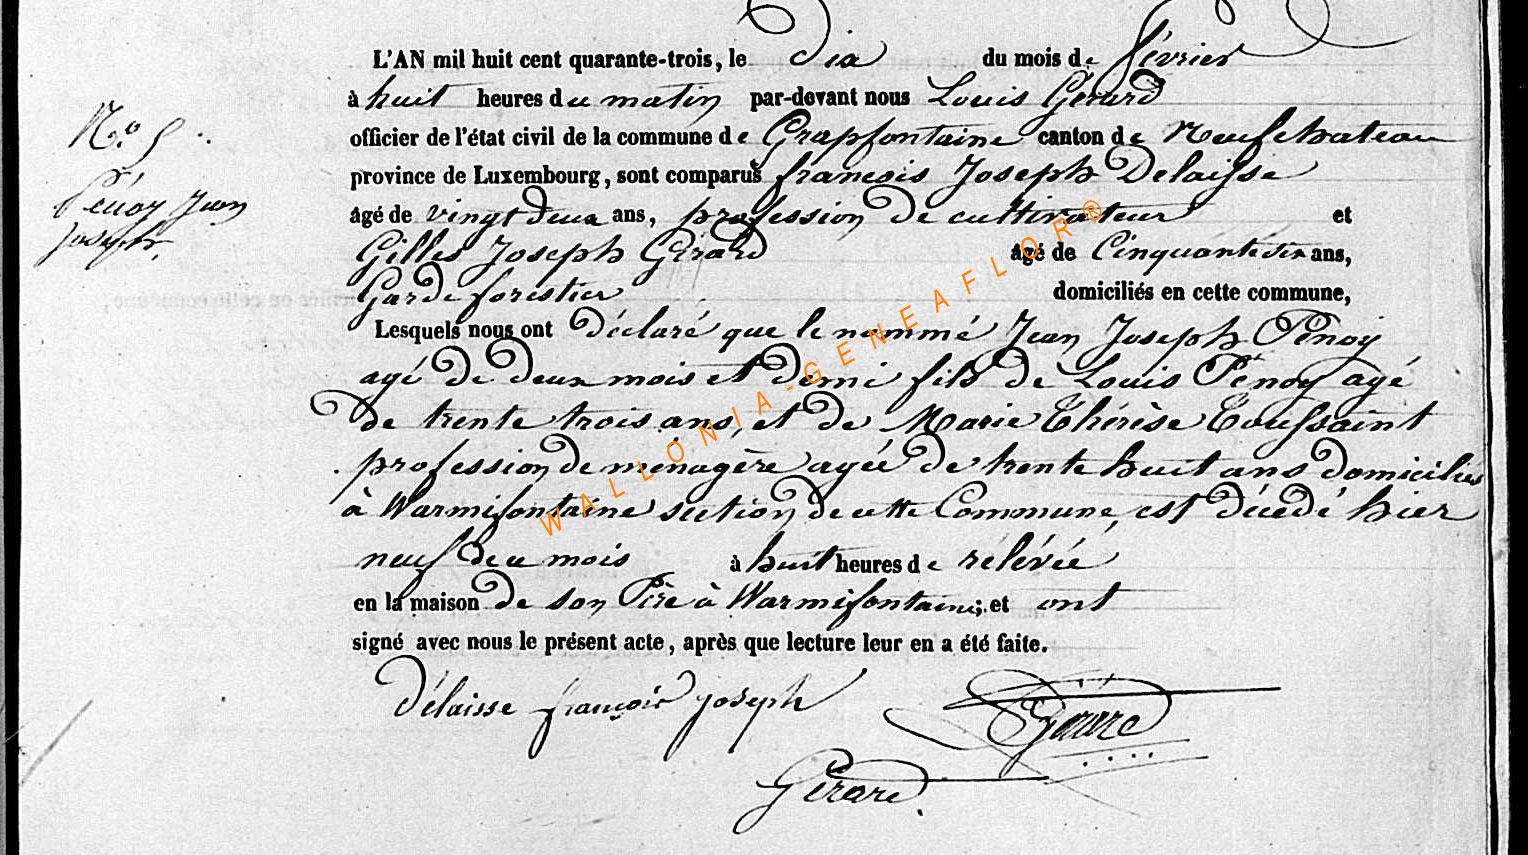 L'AN mil huit cent quarante-trois, le dix du mois de février
à huit heures du matin par-devant nous Louis Gérard
officier de l'état civil de la commune de Grapfontaine canton de Neufchateau
province de Luxembourg, sont comparus francois Joseph Delaisse
âgé de vingt deux ans, profession de cultivateur et
Gilles Joseph Gérard âgé de Cinquante dix ans,
Garde forestier domiciliés en cette commune,
Lesquels nous ont déclaré que le nommé Jean Joseph Pénoy
agé de deux mois et demi fils de Louis Penoy agé
de trente trois ans, et de Marie Thérèse Toussaint
profession de ménagère agée de trente huit ans domiciliés
à Warmifontaine section de cette Commune, est décédé hier
neuf du mois à huit heures de rélévée
en la maison de son Père à Warmifontaine; et ont
signé avec nous le présent acte, après que lecture leur en a été faite.
Délaisse françois joseph
Gérard
Gérard.
N.o 5.
Pénoy Jean
Joseph,
WALLONIA-GENEAFLOR®